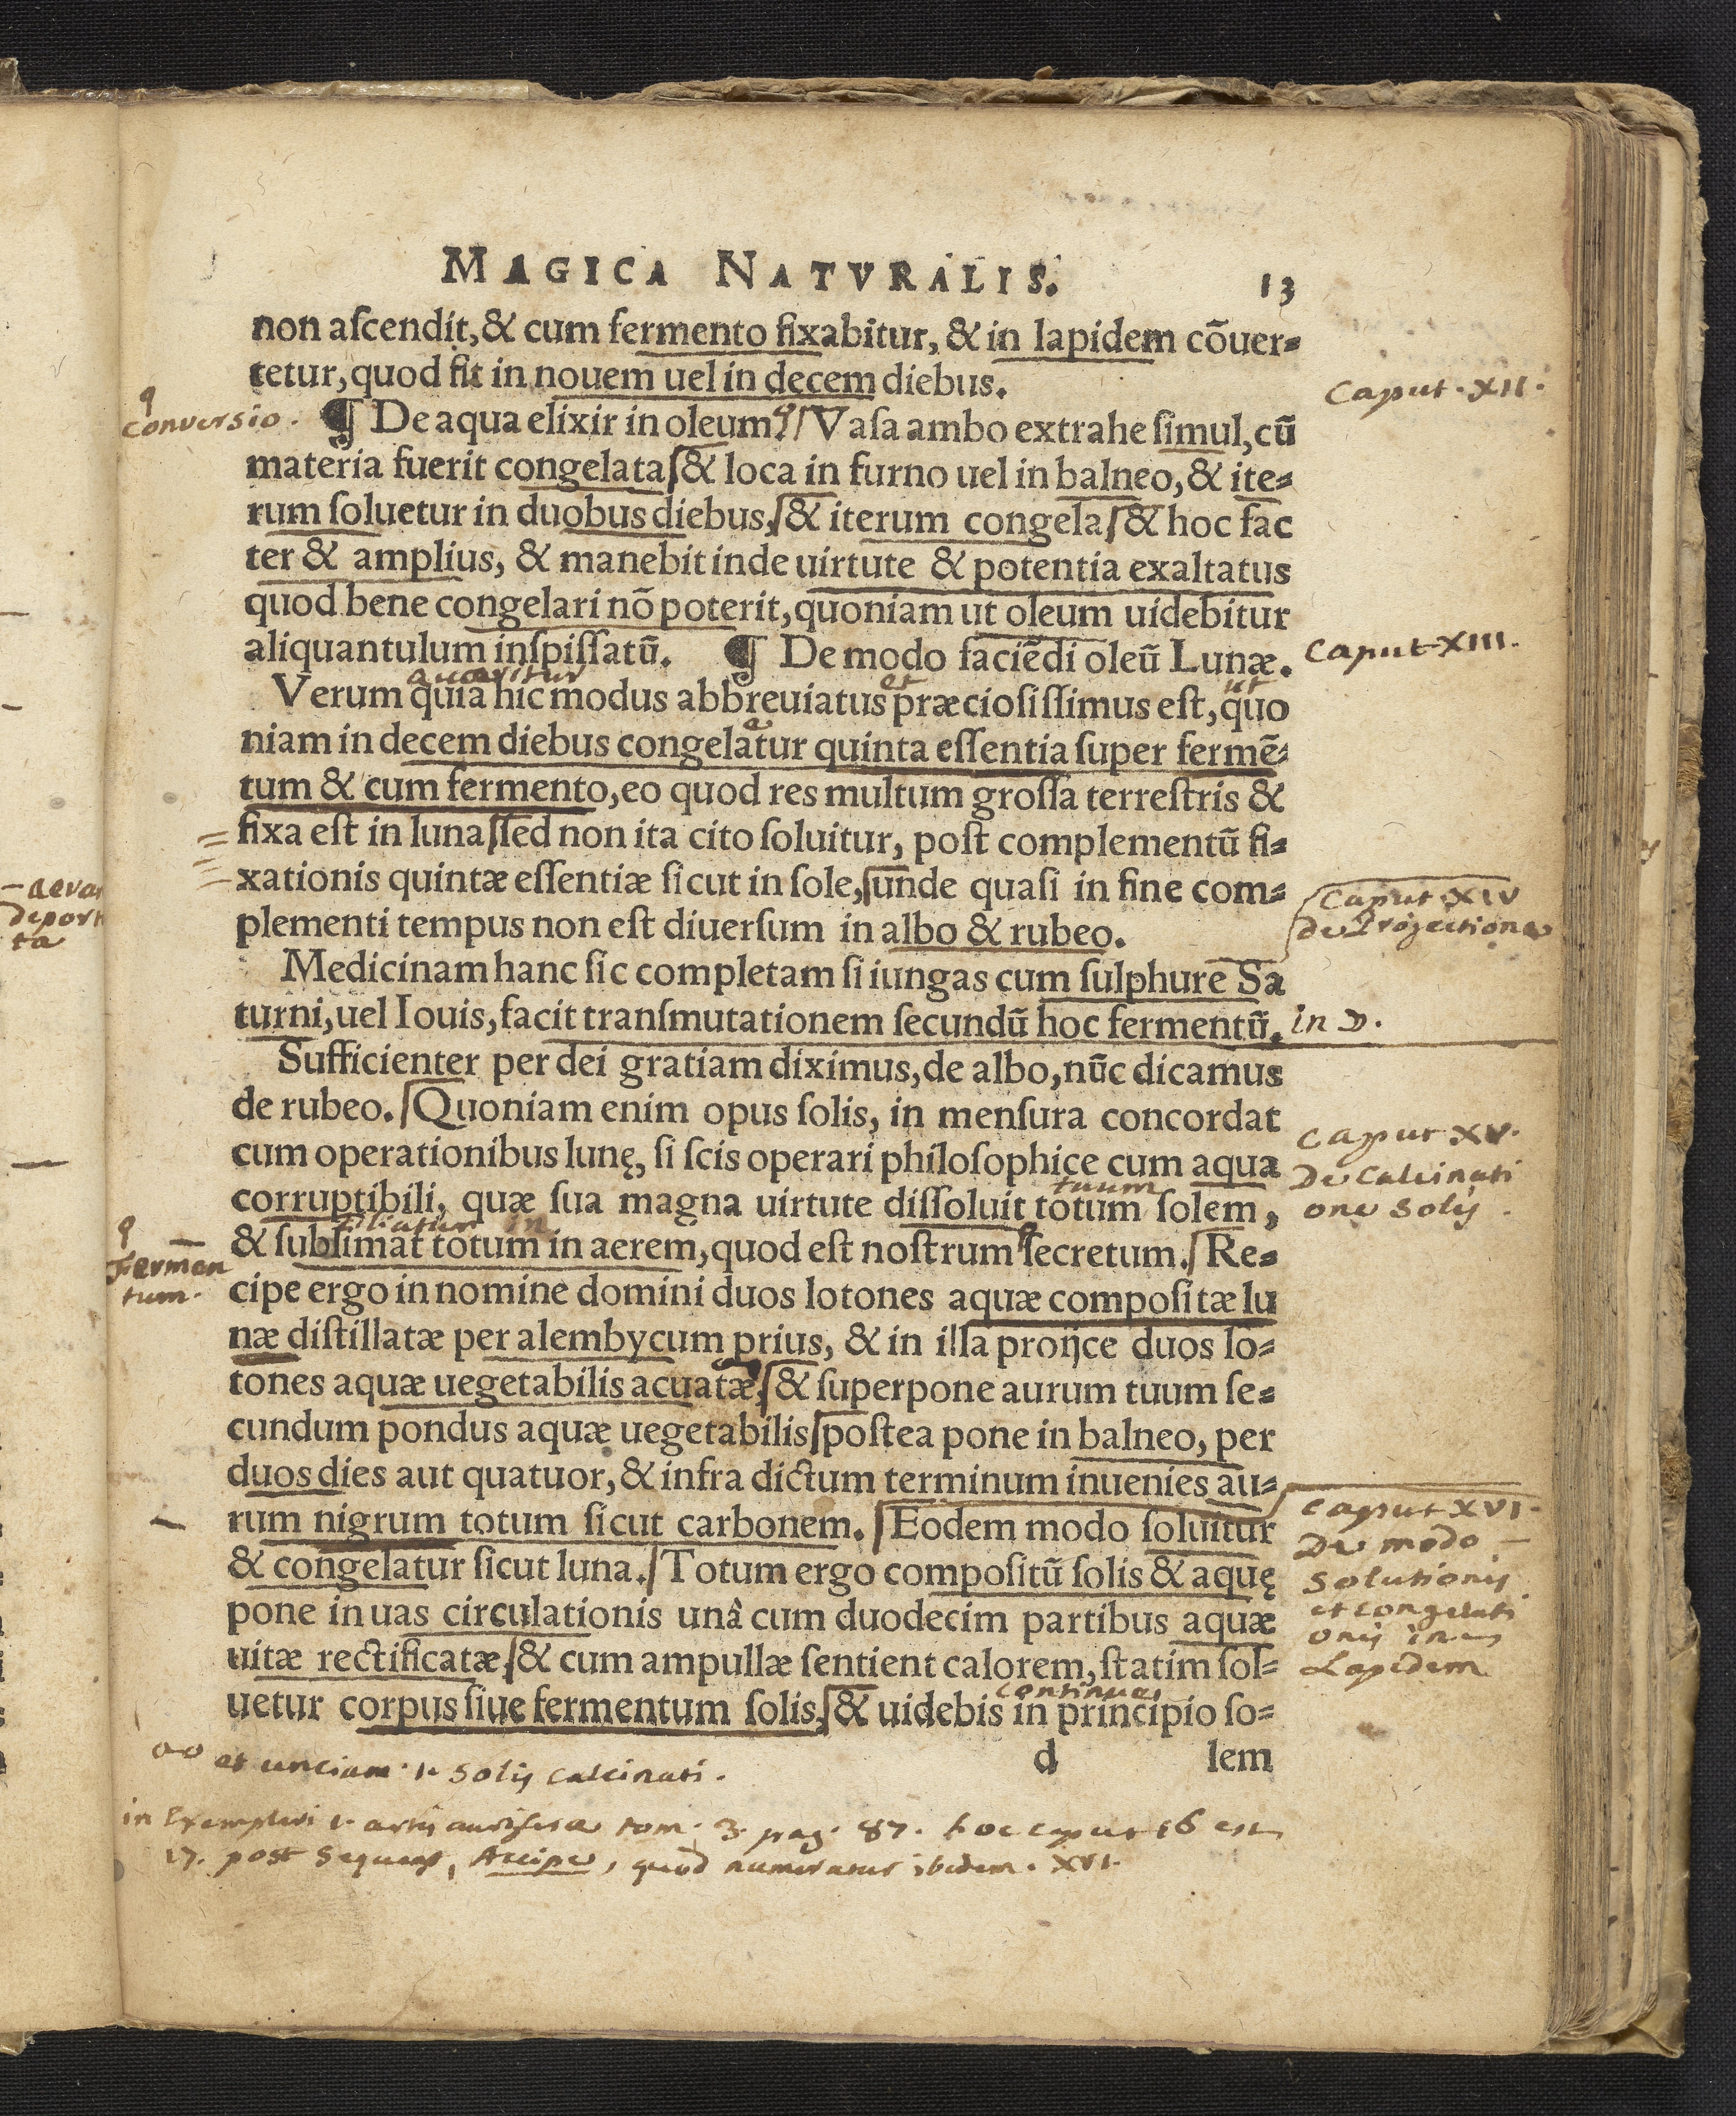 MAGICA NATVRALIS. 13
non aſcendit, & cum fermento fixabitur, & in lapidem cõuer⸗
tetur, quod fit in nouem uel in decem diebus.
Caput · XII ·
conversio .
¶ De aqua elixir in oleum. Vaſa ambo extrahe ſimul, cũ
materia fuerit congelata & loca in furno uel in balneo, & ite⸗
rum ſoluetur in duobus diebus, & iterum congela & hoc fac
ter & amplius, & manebit inde uirtute & potentia exaltatus
quod bene congelari nõ poterit, quoniam ut oleum uidebitur
aliquantulum inſpiſſatũ. ¶ De modo faciẽdi oleũ Lunæ.
Caput XIII.
et ut
Verum quia hic modus abbreuiatus præcioſiſſimus eſt, quo
a
niam in decem diebus congelatur quinta eſſentia ſuper fermẽ⸗
tum & cum fermento, eo quod res multum groſſa terreſtris &
fixa eſt in luna ſed non ita cito ſoluitur, poſt complementũ fi⸗
xationis quintæ eſſentiæ ſicut in ſole, unde quaſi in fine com⸗
plementi tempus non eſt diuerſum in albo & rubeo.
Caput XIV
de Projectione
Medicinam hanc ſic completam ſi iungas cum ſulphure Sa
turni, uel Iouis, facit tranſmutationem ſecundũ hoc fermentũ.
in ☽.
Sufficienter per dei gratiam diximus, de albo, nũc dicamus
de rubeo. Quoniam enim opus ſolis, in menſura concordat
cum operationibus lunę, ſi ſcis operari philoſophice cum aqua
Caput XV.
De Calcinati
one Solis .
tuum
corruptibili, quæ ſua magna uirtute diſſoluit totum ſolem,
in
& ſublimat totum in aerem, quod eſt noſtrum ſecretum. Re⸗
Fermen
tum.
cipe ergo in nomine domini duos lotones aquæ compoſitæ lu
næ diſtillatæ per alembycum prius, & in illa proijce duos lo⸗
tones aquæ uegetabilis acuatæ, & ſuperpone aurum tuum ſe⸗
cundum pondus aquæ uegetabilis poſtea pone in balneo, per
duos dies aut quatuor, & infra dictum terminum inuenies au⸗
rum nigrum totum ſicut carbonem. Eodem modo ſoluitur
& congelatur ſicut luna. Totum ergo compoſitũ ſolis & aquę
pone in uas circulationis unâ cum duodecim partibus aquæ
uitæ rectificatæ, & cum ampullæ ſentient calorem, ſtatim ſol⸗
Caput XVI.
De modo
Solutionis
et congelati
onis in
Lapidem
uetur corpus ſiue fermentum ſolis, & uidebis in principio ſo⸗
d lem
et unciam · 1 · Solis calcinati .
in Exemplari 1. artis auriferæ tom. 3. pag. 87. hoc caput 16 est
17. post sequens, Accipe, quod numeratur ibidem. XVI.